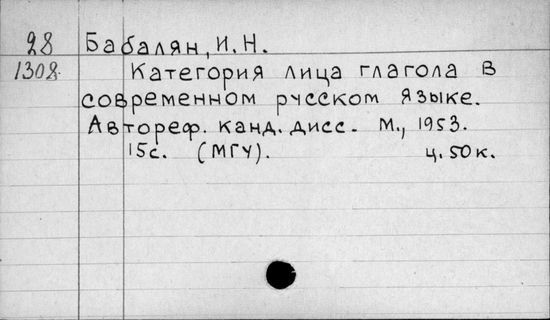 28 Бабалян, И. Н.
1308 Категория лица глагола в
современном русском языке.
Автореф. канд. дисс. М., 1953.
15с. (МГУ). ц. 50к.